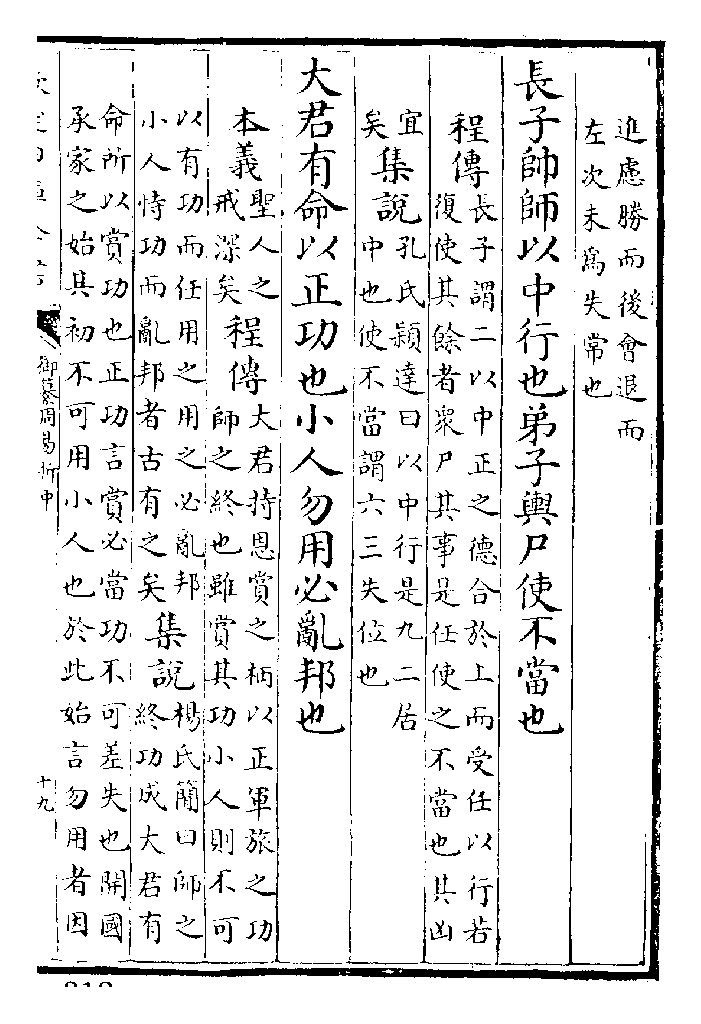 進慮勝而後會退而
左次未為失常也
長子帥師以中行也弟子輿尸使不當也
程傳長子謂二以中正之德合於上而受任以行若
復使其餘者衆尸其事是任使之不當也其凶
宜集說孔氏穎達曰以中行是九二居
矣中也使不當謂六三失位也
大君有命以正功也小人勿用必亂邦也
本義聖人之
戒深矣
程傳大君持恩賞之柄以正軍旅之功
師之終也雖賞其功小人則不可
以有功而任用之用之必亂邦
小人恃功而亂邦者古有之矣
集說楊氏簡曰師之
終功成大君有
命所以賞功也正功言賞必當功不可差失也開國
承家之始其初不可用小人也於此始言勿用者因
御纂周易折中
十九